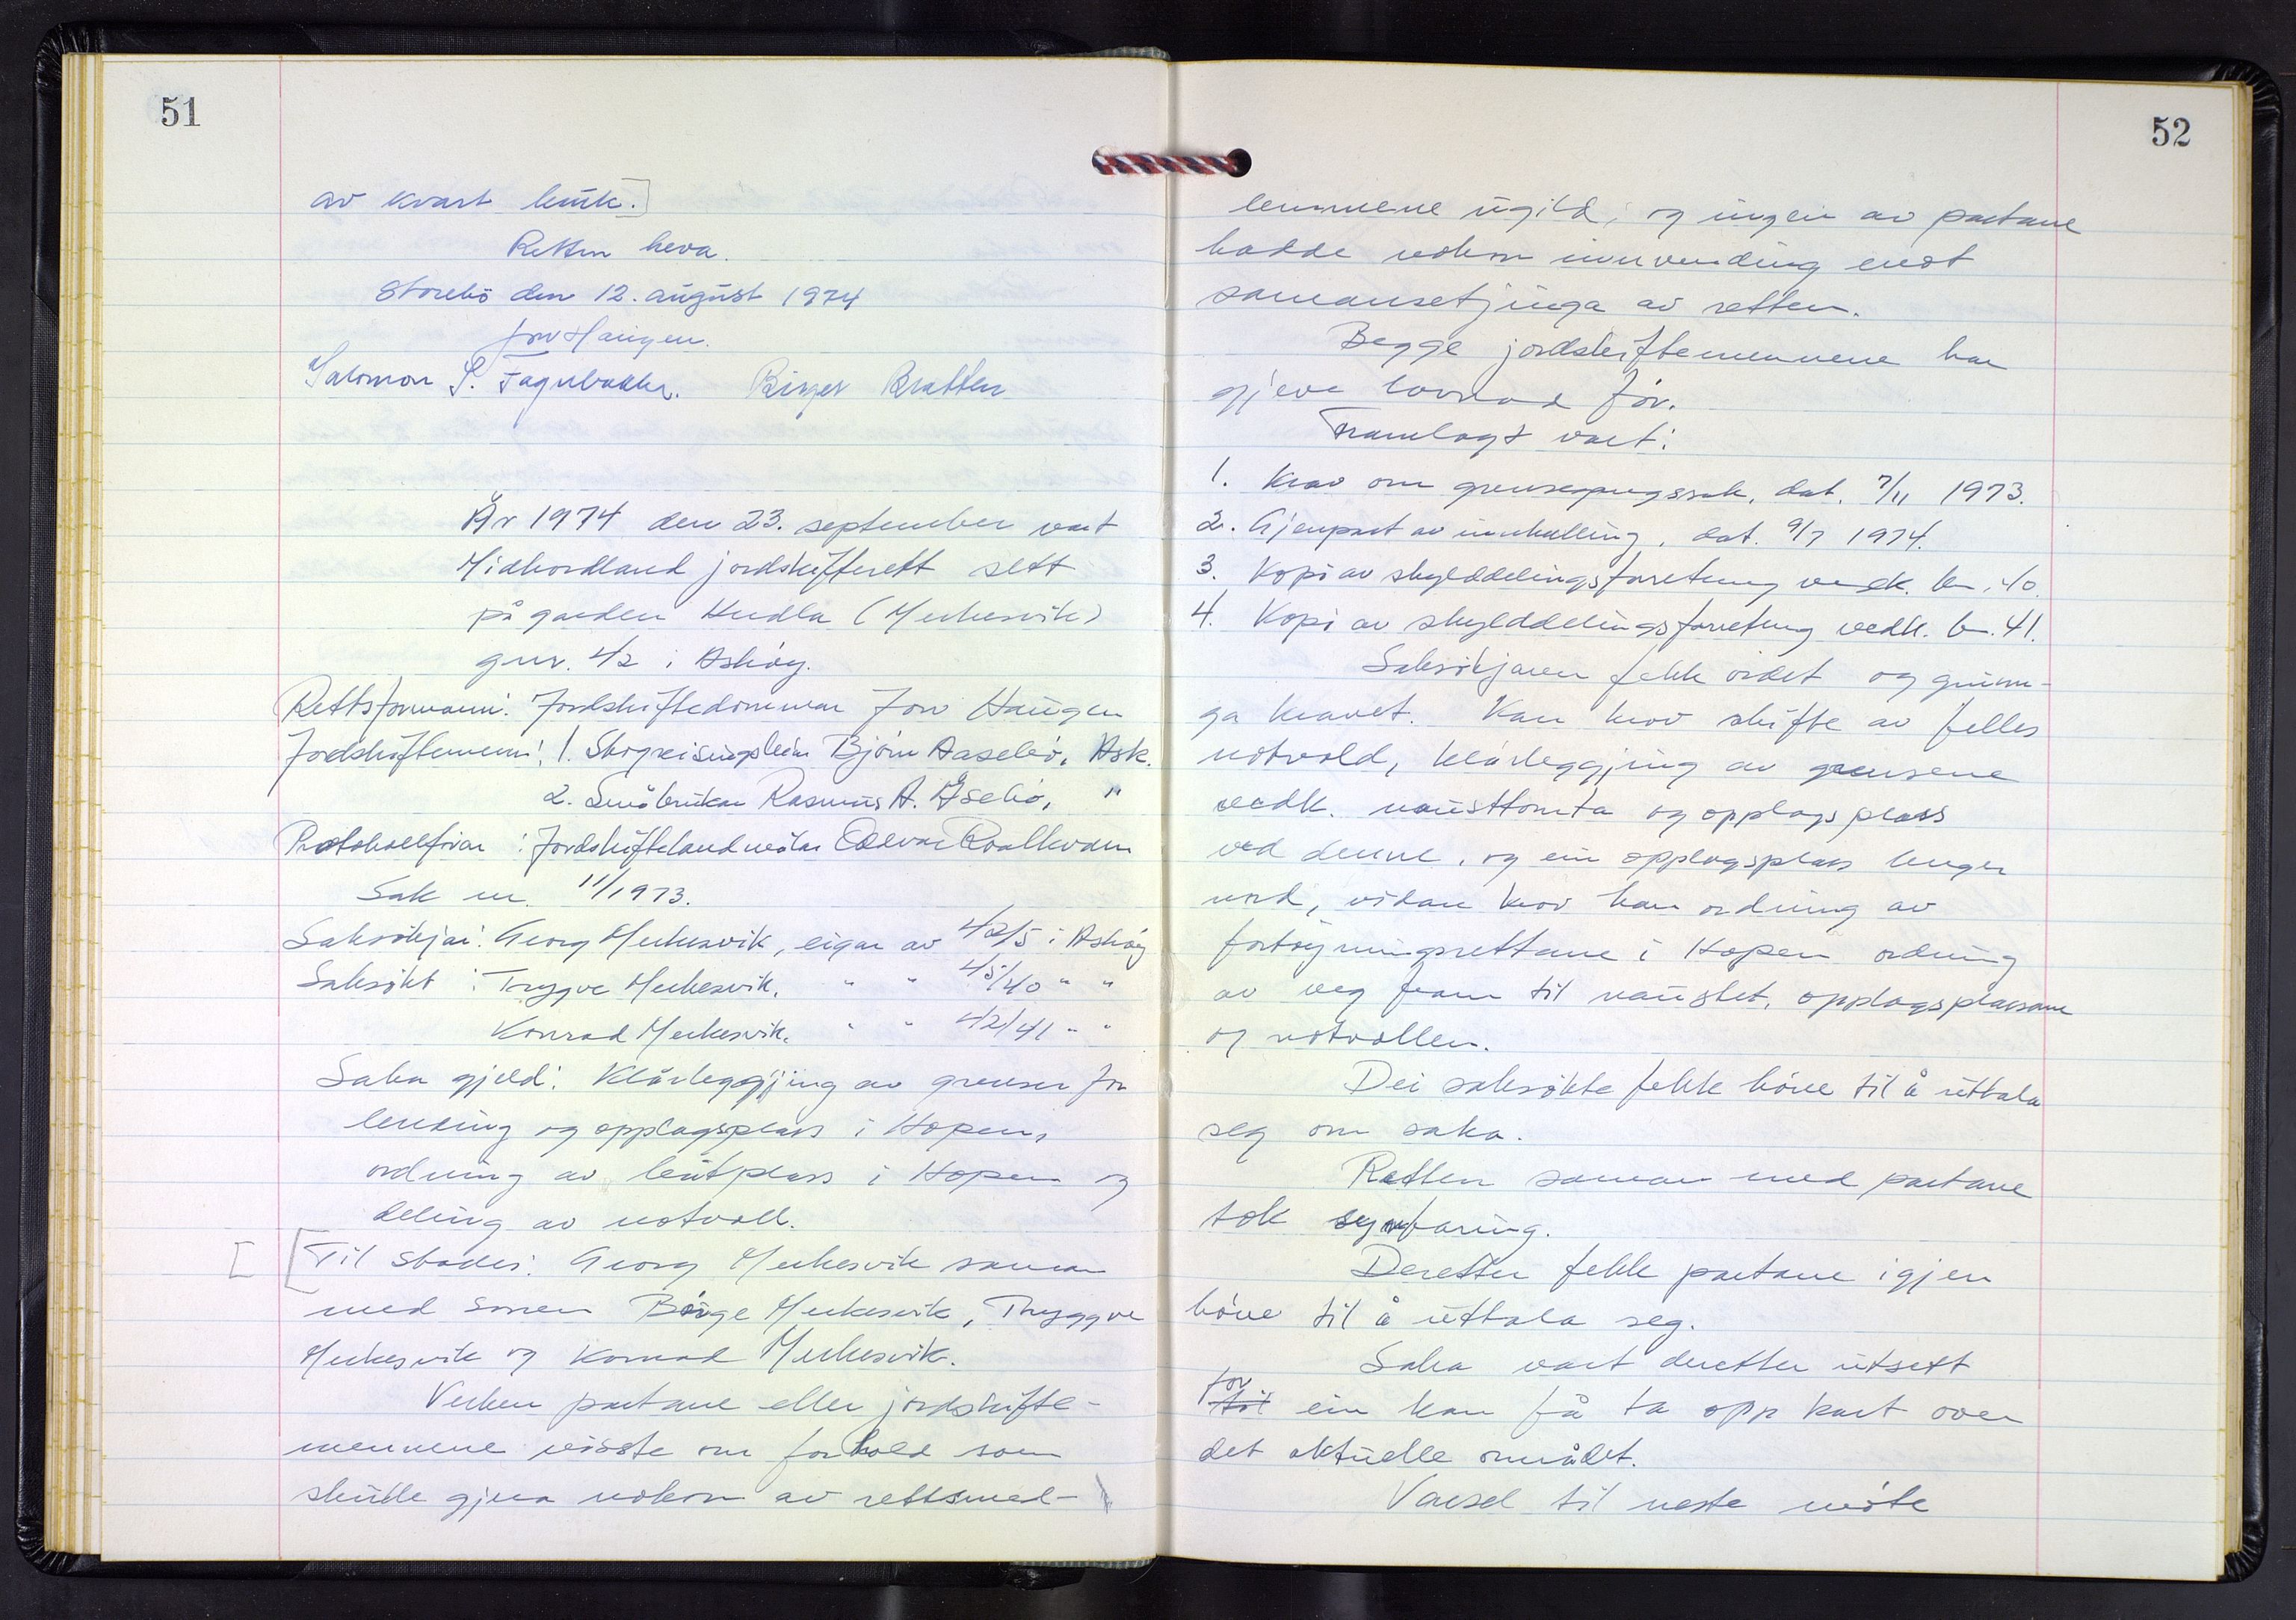 51
av kvart bruk.]
Retten heva.
Storebö den 12. august 1974
Jon Haugen.
Salomon S. Fagerbakke. Birger Bratten
År 1974 den 23. september vart
Midhordland jordskifterett sett
på garden Hudla (Merkesvik)
gnr. 42 i Askøy.
Rettsformann: Jordskiftedommar Jon Haugen
Jordskiftemenn: 1. Skogreisingsleiar Björn Aasebö, Ask.
2. Småbrukar Rasmus A. Åsebö, "
Protokollförar : Jordskiftelandmålar Oddvar Roalkvam
Sak nr. 11/1973.
Saksökjar: Georg Merkesvik, eigar av 42/5 i Askøy
Saksökt : Trygve Merkesvik, " " 45/40 " "
Konrad Merkesvik. " " 42/41 " "
Saka gjeld: Klårleggjing av grenser for
lending og opplagsplass i Hopen,
ordning av båtplass i Hopen og
deling av notvoll.
[ [Til stades: Georg Merkesvik saman
med sonen Börge Merkesvik, Tryggve
Merkesvik og Konrad Merkesvik.
Verken partane eller jordskifte-
mennene visste om forhold som
skulle gjera nokon av rettsmed-
52
lemmene ugild, og ingen av partane
hadde nokon innvending mot
samansetjinga av retten.
Begge jordskiftemennene har
gjeve lovnad för.
Framlagt vart:
1. Krav om grensegangssak, dat. 7/11 1973.
2. Gjenpart av innkalling, dat. 9/7 1974.
3. Kopi av skylddelingsforretning vedk. bn. 40.
4. Kopi av skylddelingsforretning vedk. bn. 41.
Saksökjaren fekk ordet og grunn-
ga kravet. Han krov skifte av felles
notvold, klårleggjing av grensene
vedk. nausttomta og opplagsplass
ved denne, og ein opplagsplass lenger
nord, vidare krov han ordning av
fortöyningsrettane i Hopen ordning
av veg fram til naustet, opplagsplassane
og notvollen.
Dei saksökte fekk höve til å uttala
seg om saka.
Retten saman med partane
tok synfaring.
Deretter fekk partane igjen
höve til å uttala seg.
Saka vart deretter utsett
for
til ein kan få ta opp kart over
det aktuelle området.
Varsel til neste möte